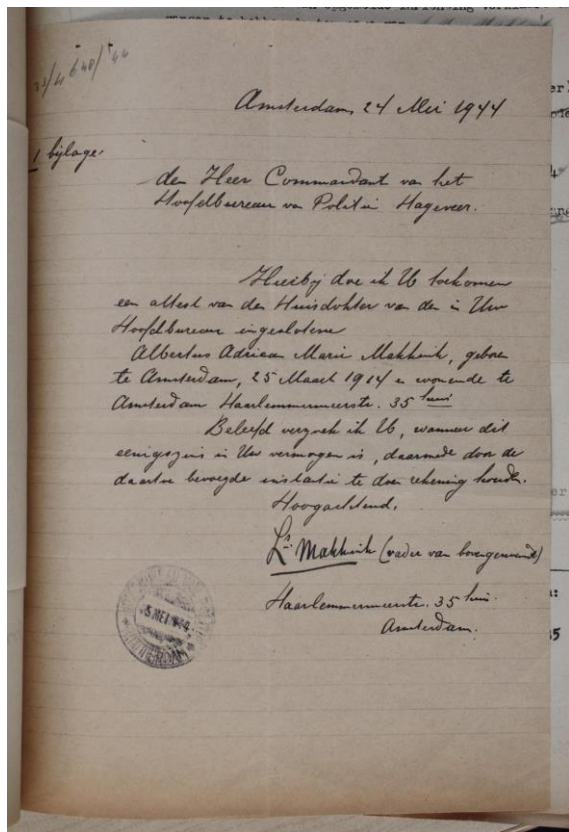 33/4 648/'44
Amsterdam, 24 Mei 1944
1 bijlage.
den Heer Commandant van het
Hoofdbureau van Politie Hageveer.
Hierbij doe ik U toekomen
een attest van den Huisdokter van den in Uw
Hoofdbureau ingeslotene
Albertus Adriaan Marie Makkink, geboren
te Amsterdam, 25 Maart 1914 en wonende te
Amsterdam Haarlemmermeerstr. 35 huis
Beleefd verzoek ik U, wanneer dit
eenigszins in Uw vermogen is, daarmede door de
daartoe bevoegde instantie te doen rekening houden.
Hoogachtend,
Makkink (vader van bovengenoemd)
Haarlemmermeerstr. 35 huis.
Amsterdam.
5 MEI